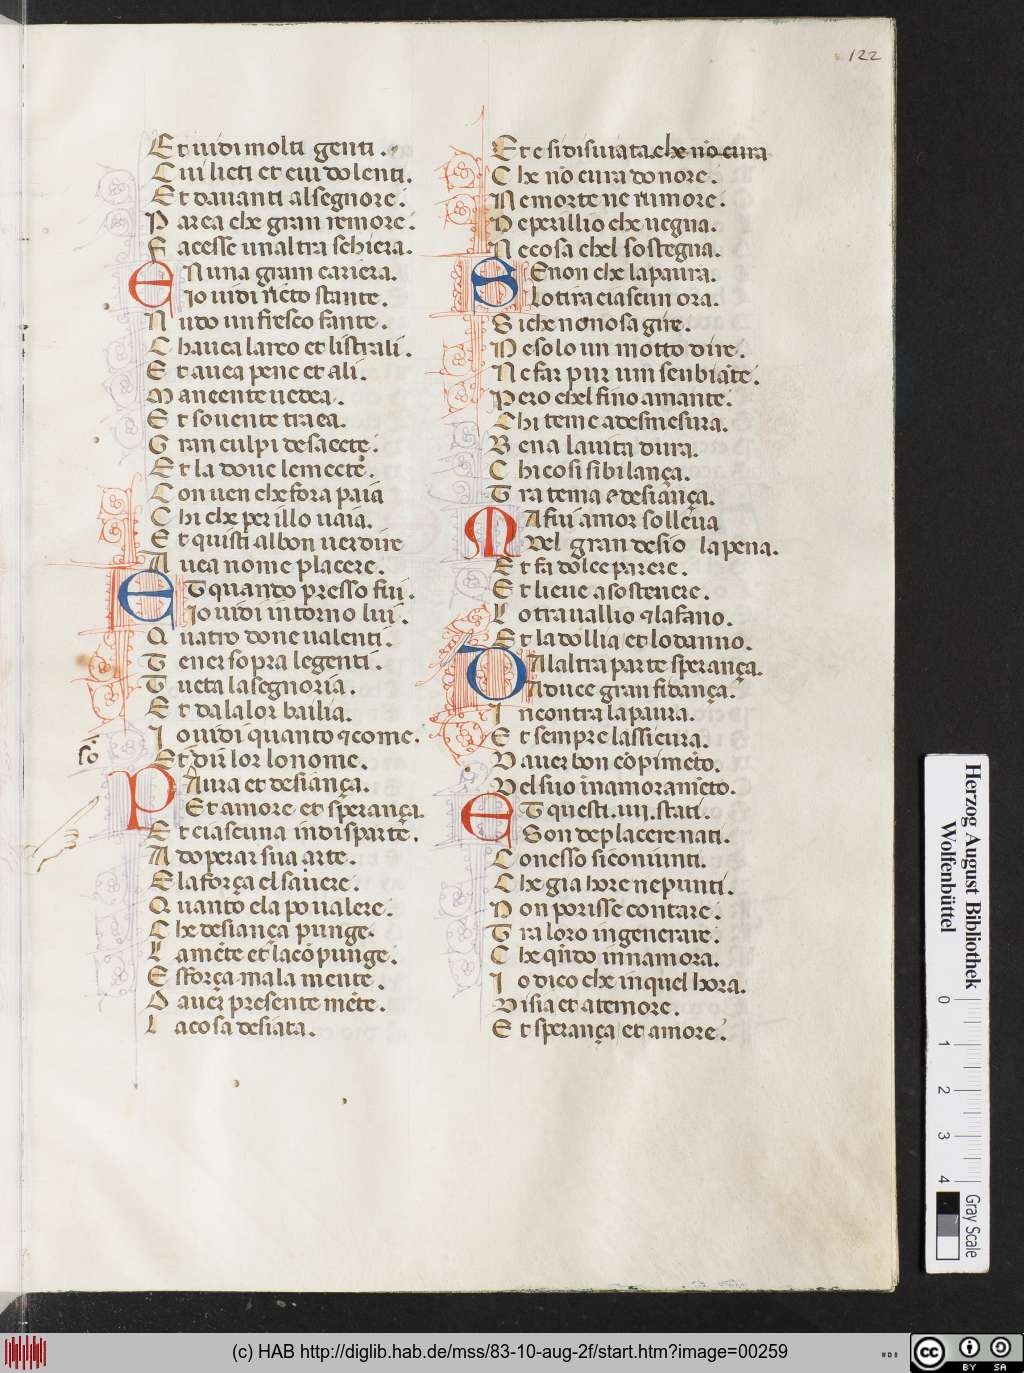 122
Et uidi molti genti.
Cui lieti et cui dolenti.
Et dauanti al segnore.
Parea che gran remore.
Facesse unaltra schiera.
En una gram cariera.
Io uidi ricto stante.
Nudo un fresco fante.
Chauea larco et li strali.
Et auea pene et ali.
Ma neente uedea.
Et souente traea.
Gran culpi de saecte.
Et la doue le mecte.
Conuen che fora paia
Chi che per illo uaia.
Et quisti al bon uer dire
Auea nome placere.
Et quando presso fui.
Io uidi intorno lui.
Quatro done ualenti.
Tener sopra le genti.
Tucta la segnoria.
Et da la lor bailia.
Io uidi quanto & come.
so
Et diro lor lo nome.
Paura et desiança.
Et amore et sperança.
Et ciascuna in disparte.
Adoperar sua arte.
E la força el sauere.
Quanto ela po ualere.
Che desiança punge.
La mēte et la cōpunge.
E sforça mala mente.
Dauer presente mēte.
La cosa desiata.
Et e si disuiata che nō cura
Che nō cura donore.
Ne morte ne rimore.
Ne perillio che uegna.
Ne cosa chel sostegna.
Se non che la paura.
Lo tira ciascun ora.
Siche non osa gire.
Ne solo un motto dire.
Ne far pur um senbiāte.
Pero chel fino amante.
Chi teme a desmesura.
Bena la uita dura.
Chi cosi si bilança.
Tra tema & desiança.
Ma fui amor sollēua
Del gran desio la pena.
Et fa dolce parere.
Et lieue a sostenere.
Lo trauallio & lafano.
Et la dollia et lo danno.
Dalaltra parte sperança.
Aduce gran fidança.
Incontra la paura.
Et sempre lassicura.
Dauer bon cōpimēto.
Del suo inamoramēto.
Et questi .iiij. stati.
Son de placere nati.
Con esso si coniunti.
Che gia hore ne punti.
Non porisse contare.
Tra loro ingenerare.
Che quādo innamora.
Io dico che in quel hora.
Disia et a temore.
Et sperança et amore.
Herzog August Bibliothek
Wolfenbüttel
0 1 2 3 4
Gray Scale
(c) HAB http://diglib.hab.de/mss/83-10-aug-2f/start.htm?image=00259
cc BY SA